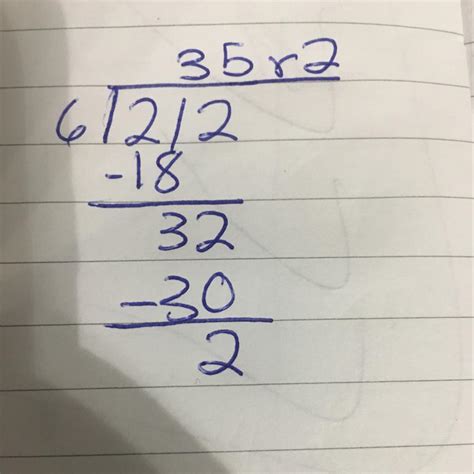 35 r2
6 212
-18
32
-30
2